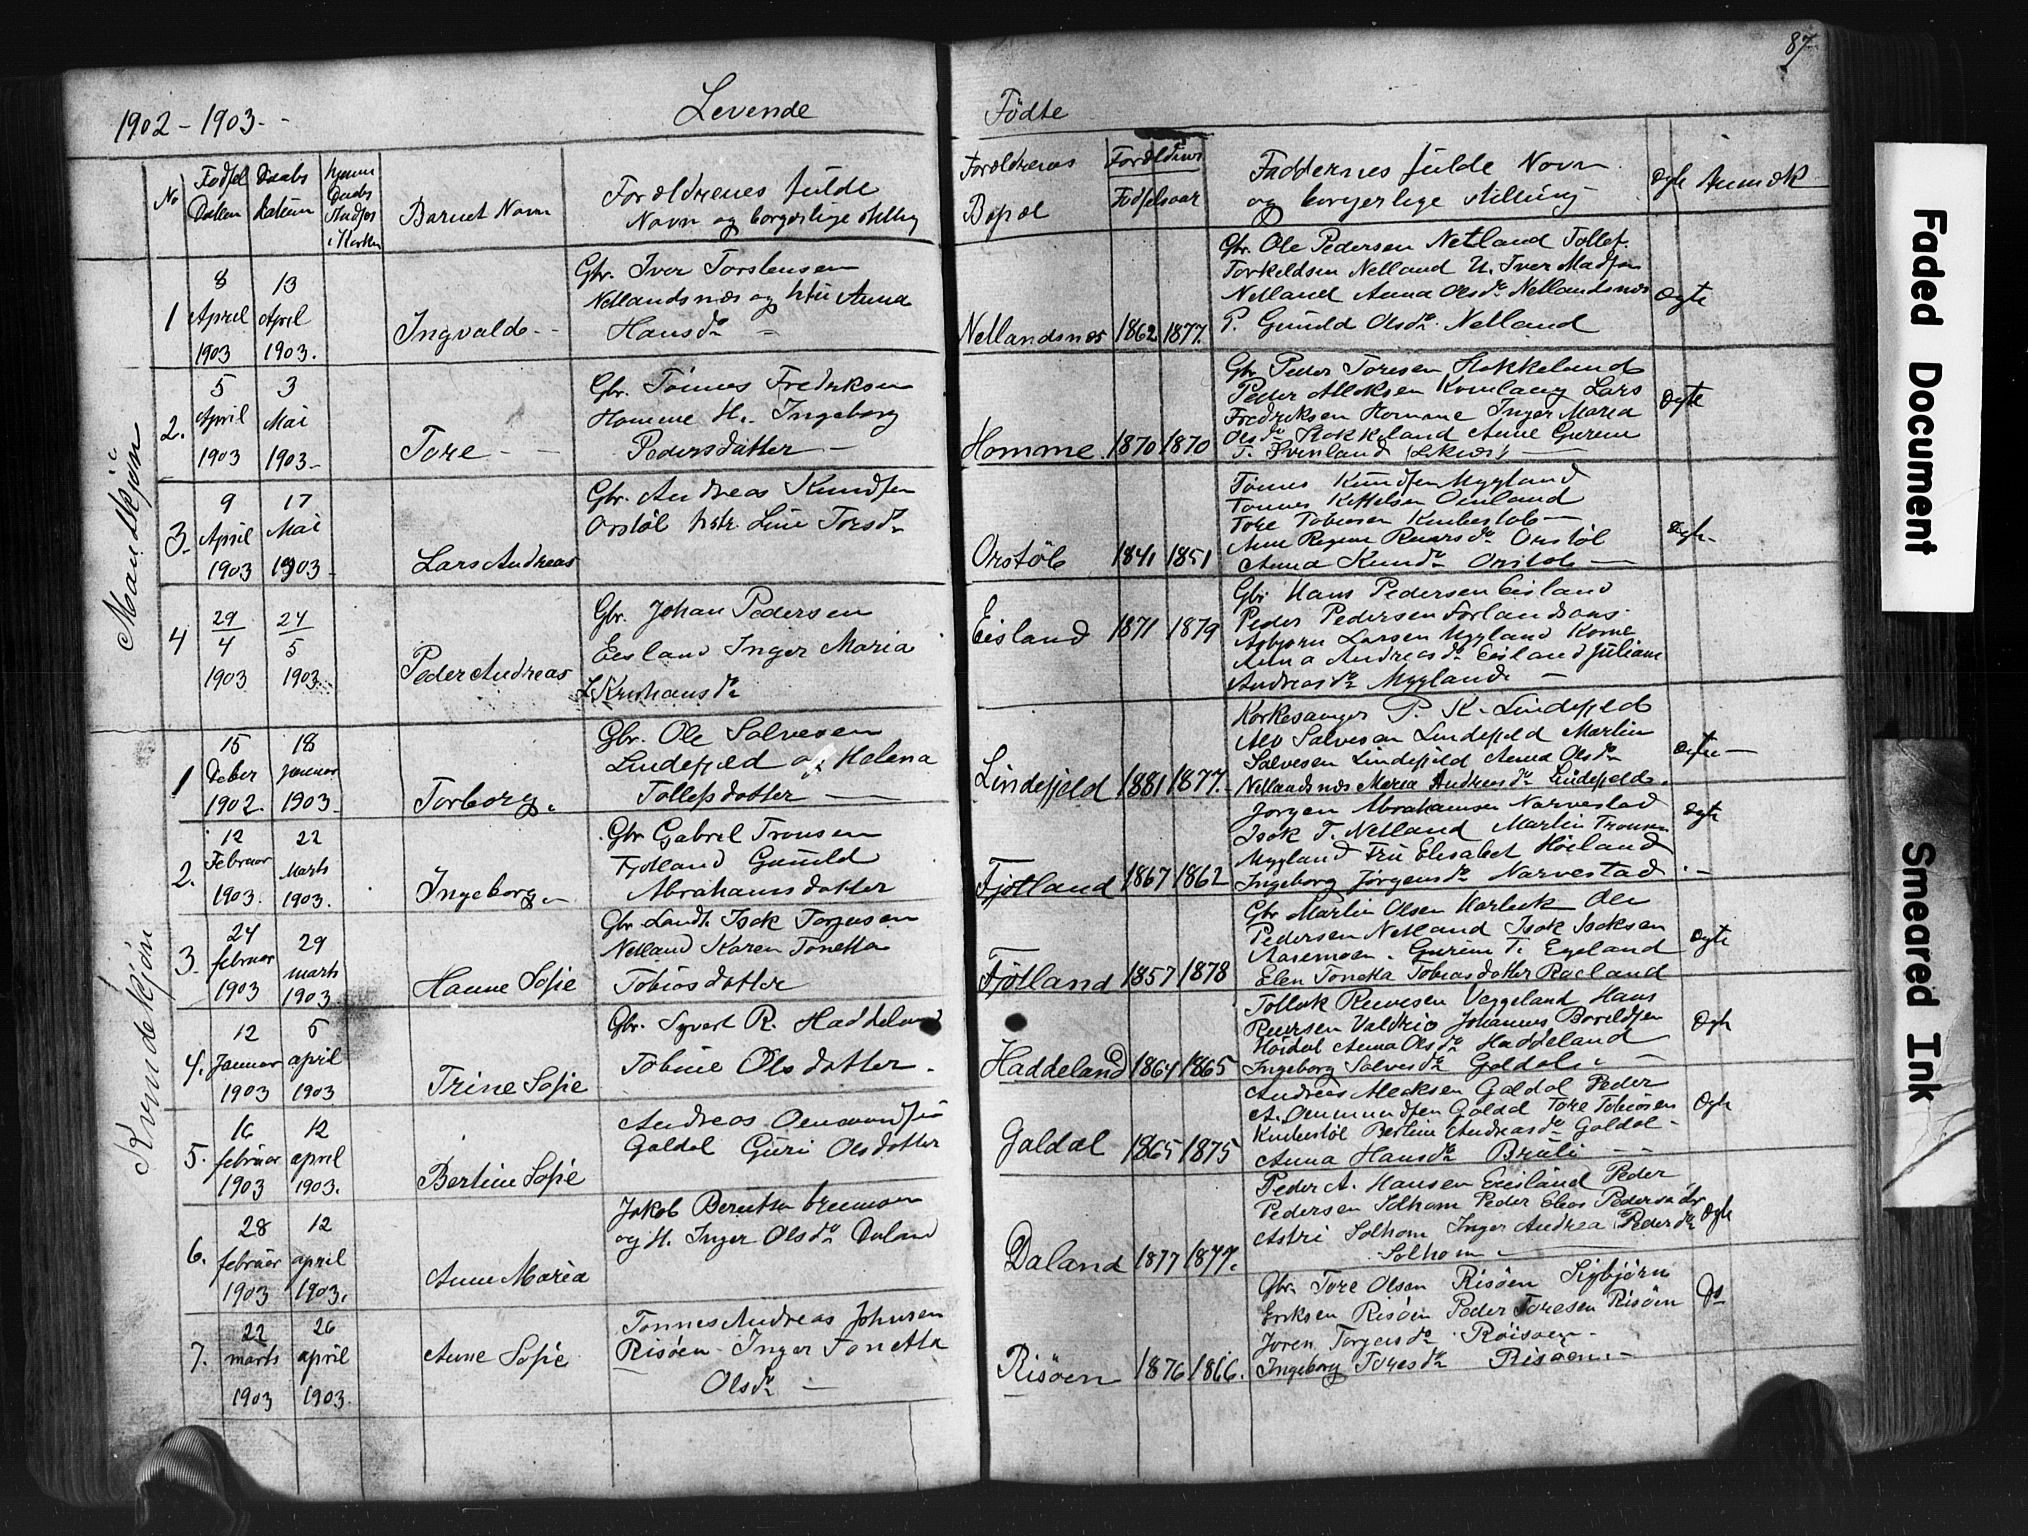 87
1902 - 1903 -
Levende
Fødte
No
Fødsel
Datum
Daabs
Datum
Hjemme
Daabs
i Kirken
Barnet Navn
Forældrenes fulde
Navn og borgerlige stilling
Forældrenes
Bopæl
Forældrenes
Fødselsaar
Faddernes fulde Navn
og borgerlige stilling
Ægte
Anmærk
Mandkjøn
1
8 April 1903
13 April 1903.
Ingvald -
Gbr. Iver Torstensen
Netlandsnæs og Hstr Anna
Hansdr -
Netlandsnæs
1862
1877.
Gbr. Ole Pedersen Netland Tollef
Torkeldsen Netland U. Iver Madsen
Netland Anna Olsdr Netlandsnæs
P. Gunild Olsdr Netland
Ægte
2.
5 April 1903
3 Mai 1903 -
Tore -
Gbr. Tønnes Fredriksen
Homme H. Ingeborg
Pedersdatter -
Homme
1870
1870
Gbr Peder Toresen Stokkeland
Peder Kvinlaug Lars
Fredriksen Homme Inger Maria
Olsdr Stokkeland Anne Gurine
T. Kvinland
Ægte
3.
9 April 1903
17 Mai 1903
Lars Andreas
Gbr. Andreas Knudsen
Orstøl Hstr. Line Torsdr
Orstøl
1841
1851
Tønnes Knudsen Mygland
Tønnes Omland
Tore Tobiasen Knibestøl -
Ane Regine Orstøl
Anna Knudsdr Orstøl -
Ægte
4
29/4 1903
24/5 1903
Peder Andreas
Gbr. Johan Pedersen
Eesland Inger Maria
Kristiansdr
Eisland
1871
1879
Gbr Hans Pedersen Eisland
Peder Pedersen
Asbjørn Larsen Mygland Kone
Anna Andreasdr Eisland Juliane
Andreasdr Mygland -
Kvindekjøn
1
15 Deber 1902.
18 januar 1903.
Torborg.
Gbr. Ole Salvesen
Lindefjeld og Helena
Tollefsdatter -
Lindefjeld
1881
1877.
Kirkesanger P. K. Lindefjeld
Salvesen Lindefjeld Martin
Salvesen Lindefjeld Anna Olsdr
Netlandsnæs Maria Andreasdr Lindefjeld.
Ægte -
2.
12 Februar 1903.
22 Marts 1903.
Ingeborg -
Gbr Gabriel Tronsen
Fjotland Gunild
Abrahamsdatter
Fjotland
1867
1862
Jørgen Abrahamsen Narvestad
Isak T. Netland Martin Tronsen
Mygland Fru Elisabet Høiland
Ingeborg Jørgensdr Narvestad. -
Ægte
3.
24 februar 1903
29 marts 1903
Hanne Sofie
Gbr. Isak Torjusen
Netland Karen Tonetta
Tobiasdatter
Fjotland
1857
1878
Gbr Martin Olsen Ole
Pedersen Netland Isak Isaksen
Aasemoen. Gurine T. Egeland
Elen Tonetta Tobiasdatter Røiland
Ægte
4.
12 Januar 1903
5 april 1903
Trine Sofie
Gbr. Syvert R. Haddeland
Tobine Olsdatter.
Haddeland
1864
1865
Tollak Reiersen Veggeland Hans
Reiersen Johannes
Høidal Anna Olsdr Haddeland
Ingeborg Salvesdr Galdal. -
Ægte
5.
16 februar 1903
12 april 1903.
Bertine Sofie
Andreas Omundsen
Galdal Guri Olsdatter
Galdal
1865
1875
Andreas Galdal Peder
A. Ommundsen Galdal Tore Tobiasen
Knibestøl Bertine Andreasdr Galdal -
Anna Hansdr
6.
28 februar 1903
12 april 1903.
Anne Maria
Jakob Berntsen
og H. Inger Olsdr Daland
Daland
1877
1877.
Peder A. Hansen Eeisland Peder
Pedersen Solhom Peder Elias Pedersen
Astri Solhom Inger Andrea Pedersdr
Solhom -
Ægte
7.
22 marts 1903
26 april 1903.
Anne Sofie
Tønnes Andreas Johnsen
Risøen - Inger Tonetta
Olsdr -
Risøen
1876
1866.
Gbr. Tore Olsen Risøen Sigbjørn
Eriksen Risøen Peder Toresen Risøen
Joren Torgersdr Røisøen.
Ingeborg Toresdr Risøen. -
Faded Document
Smeared Ink